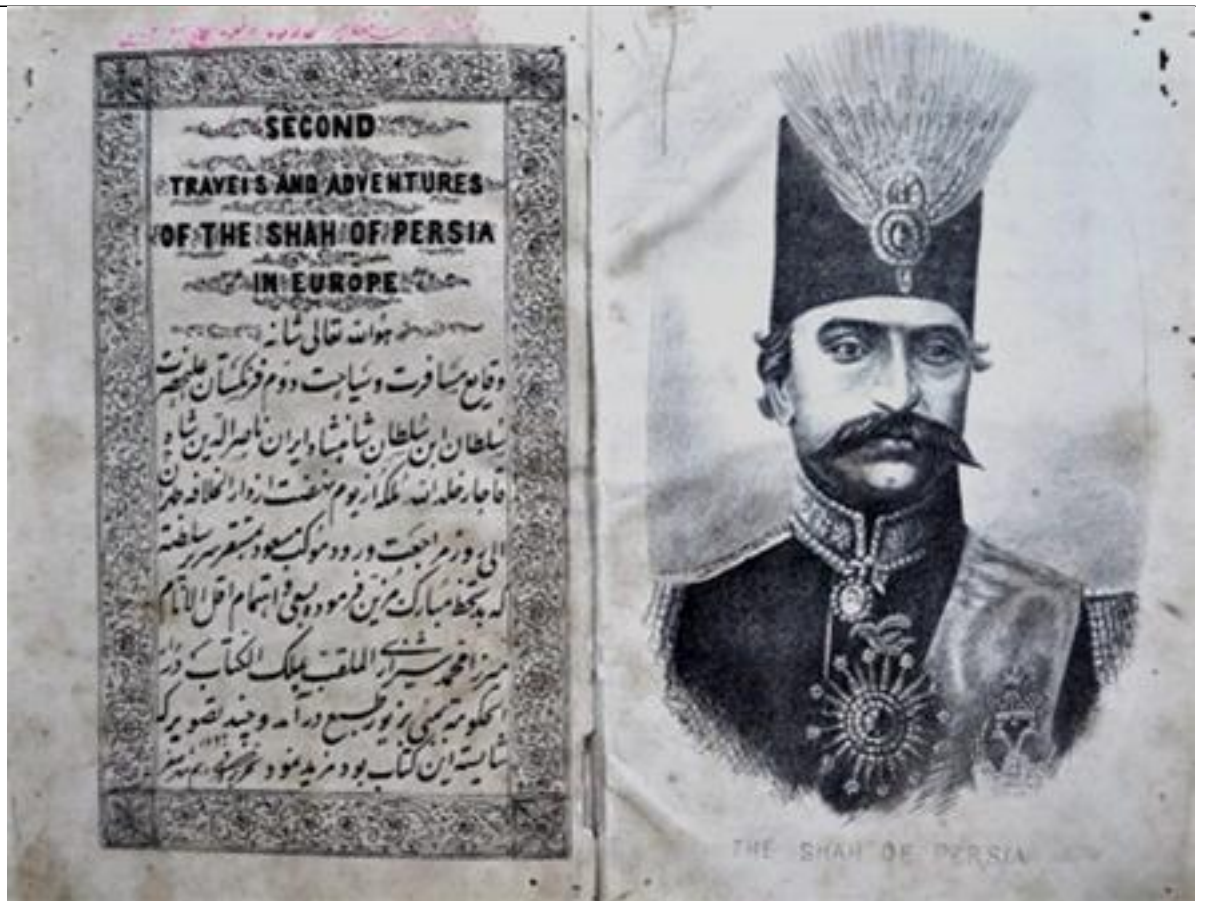 SECOND
TRAVELS AND ADVENTURES
OF THE SHAH OF PERSIA
IN EUROPE
هو الله تعالی شانه
وقایع مسافرت و سیاحت دوم فرنگستان علیحضرت
سلطان ابن سلطان شاهنشاه ایران ناصرالدین شاه
قاجار خلد الله ملکه از یوم نهضت از دار الخلافه طهران
الی روز مراجعت و ورود موکب مسعود بمستقر سریر سلطنة
که بخط مبارک مزین فرموده بسعی و اهتمام اقل الانام
میرزا محمد شیرازی الملقب بملک الکتاب در دار
الحکومة بمبئی بزیور طبع در آمد و چند تصویر که
شایسته این کتاب بود مزید نمود
THE SHAH OF PERSIA